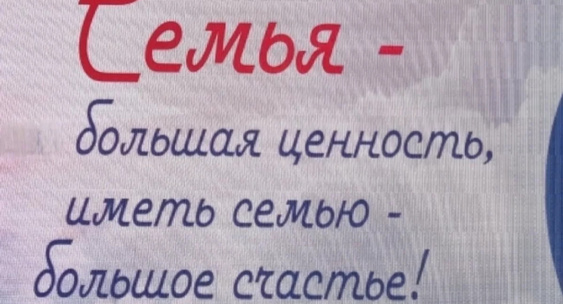 Семья -
большая ценность,
иметь семью -
большое счастье!